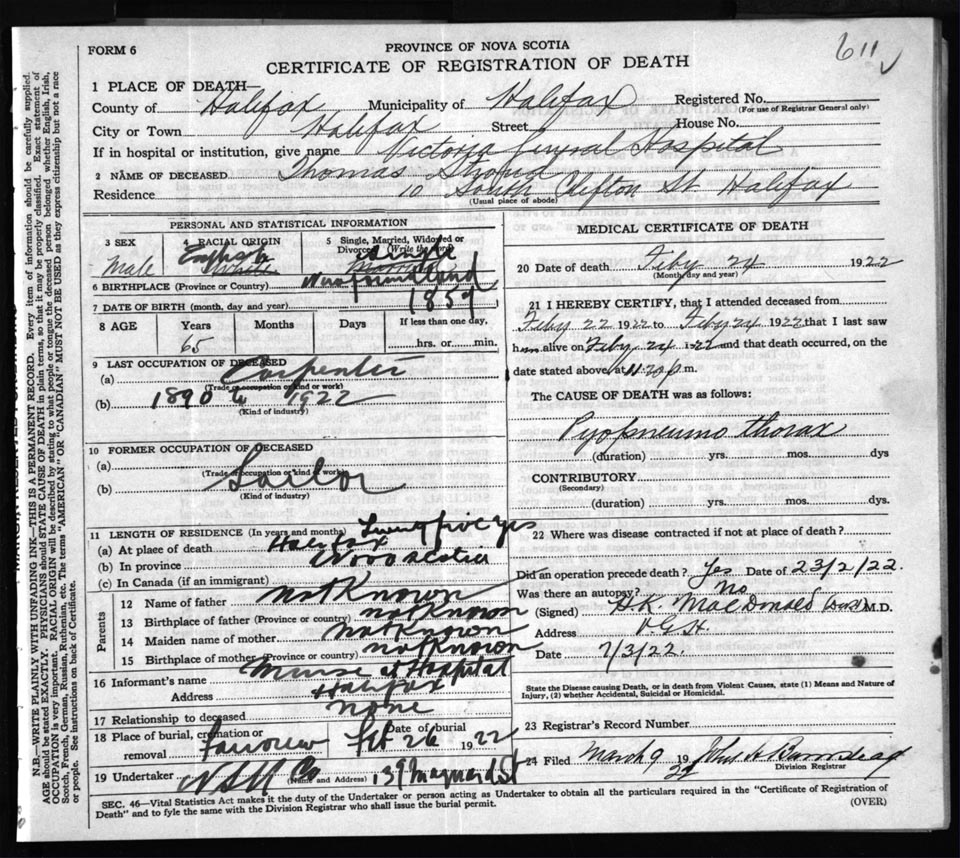 FORM 6
PROVINCE OF NOVA SCOTIA
611
CERTIFICATE OF REGISTRATION OF DEATH
1 PLACE OF DEATH—
County of Halifax Municipality of Halifax Registered No.
(For use of Registrar General only)
City or Town Halifax Street House No.
If in hospital or institution, give name Victoria General Hospital
2 NAME OF DECEASED Thomas Stroud
Residence 10 South Clifton St Halifax
(Usual place of abode)
PERSONAL AND STATISTICAL INFORMATION
3 SEX Male
4 RACIAL ORIGIN English White
5 Single, Married, Widowed or Divorced (Write the word) Single
6 BIRTHPLACE (Province or Country) Newfoundland
7 DATE OF BIRTH (month, day and year) 1859
8 AGE Years Months Days If less than one day,
65 hrs. or min.
9 LAST OCCUPATION OF DECEASED
(a) Carpenter
(Trade or occupation or kind or work)
(b) 1890 to 1922
(Kind of industry)
10 FORMER OCCUPATION OF DECEASED
(a)
(Trade or occupation or kind or work)
(b) Sailor
(Kind of industry)
11 LENGTH OF RESIDENCE (In years and months) Twenty five yrs
(a) At place of death Halifax
(b) In province Nova Scotia
(c) In Canada (if an immigrant)
Parents
12 Name of father not Known
13 Birthplace of father (Province or country) not Known
14 Maiden name of mother not Known
15 Birthplace of mother (Province or country) not Known
16 Informant's name at Hospital
Address Halifax
17 Relationship to deceased none
18 Place of burial, cremation or removal Fairview Date of burial Feb 26 1922
19 Undertaker N S U Co (Name and Address) 139 Maynard St
MEDICAL CERTIFICATE OF DEATH
20 Date of death Feby 24 1922
(Month, day and year)
21 I HEREBY CERTIFY, that I attended deceased from
Feby 22 1922 to Feby 24 1922 that I last saw
him alive on Feby 24 1922 and that death occurred, on the
date stated above at 11.20 p.m.
The CAUSE OF DEATH was as follows:
Pyopneumo thorax
(duration) yrs. mos. dys
CONTRIBUTORY
(Secondary)
(duration) yrs. mos. dys.
22 Where was disease contracted if not at place of death?
Did an operation precede death? Yes Date of 23/2/22.
Was there an autopsy? No
(Signed) H.K. MacDonald M.D.
Address V.G.H.
Date 7/3/22.
State the Disease causing Death, or in death from Violent Causes, state (1) Means and Nature of
Injury, (2) whether Accidental, Suicidal or Homicidal.
23 Registrar's Record Number
24 Filed March 9 1922
Division Registrar
SEC. 46—Vital Statistics Act makes it the duty of the Undertaker or person acting as Undertaker to obtain all the particulars required in the "Certificate of Registration of
Death" and to fyle the same with the Division Registrar who shall issue the burial permit.
(OVER)
N.B.—WRITE PLAINLY WITH UNFADING INK—THIS IS A PERMANENT RECORD. Every item of information should be carefully supplied.
AGE should be stated EXACTLY. PHYSICIANS should STATE CAUSE OF DEATH in plain terms, so that it may be properly classified. Exact statement of
OCCUPATION is very important. RACIAL ORIGIN will be described by stating to what people or tongue the deceased person belonged whether English, Irish,
Scotch, French, German, Russian, Ruthenian, etc. The terms "AMERICAN" OR "CANADIAN" MUST NOT BE USED as they express citizenship but not a race
or people. See instructions on back of Certificate.